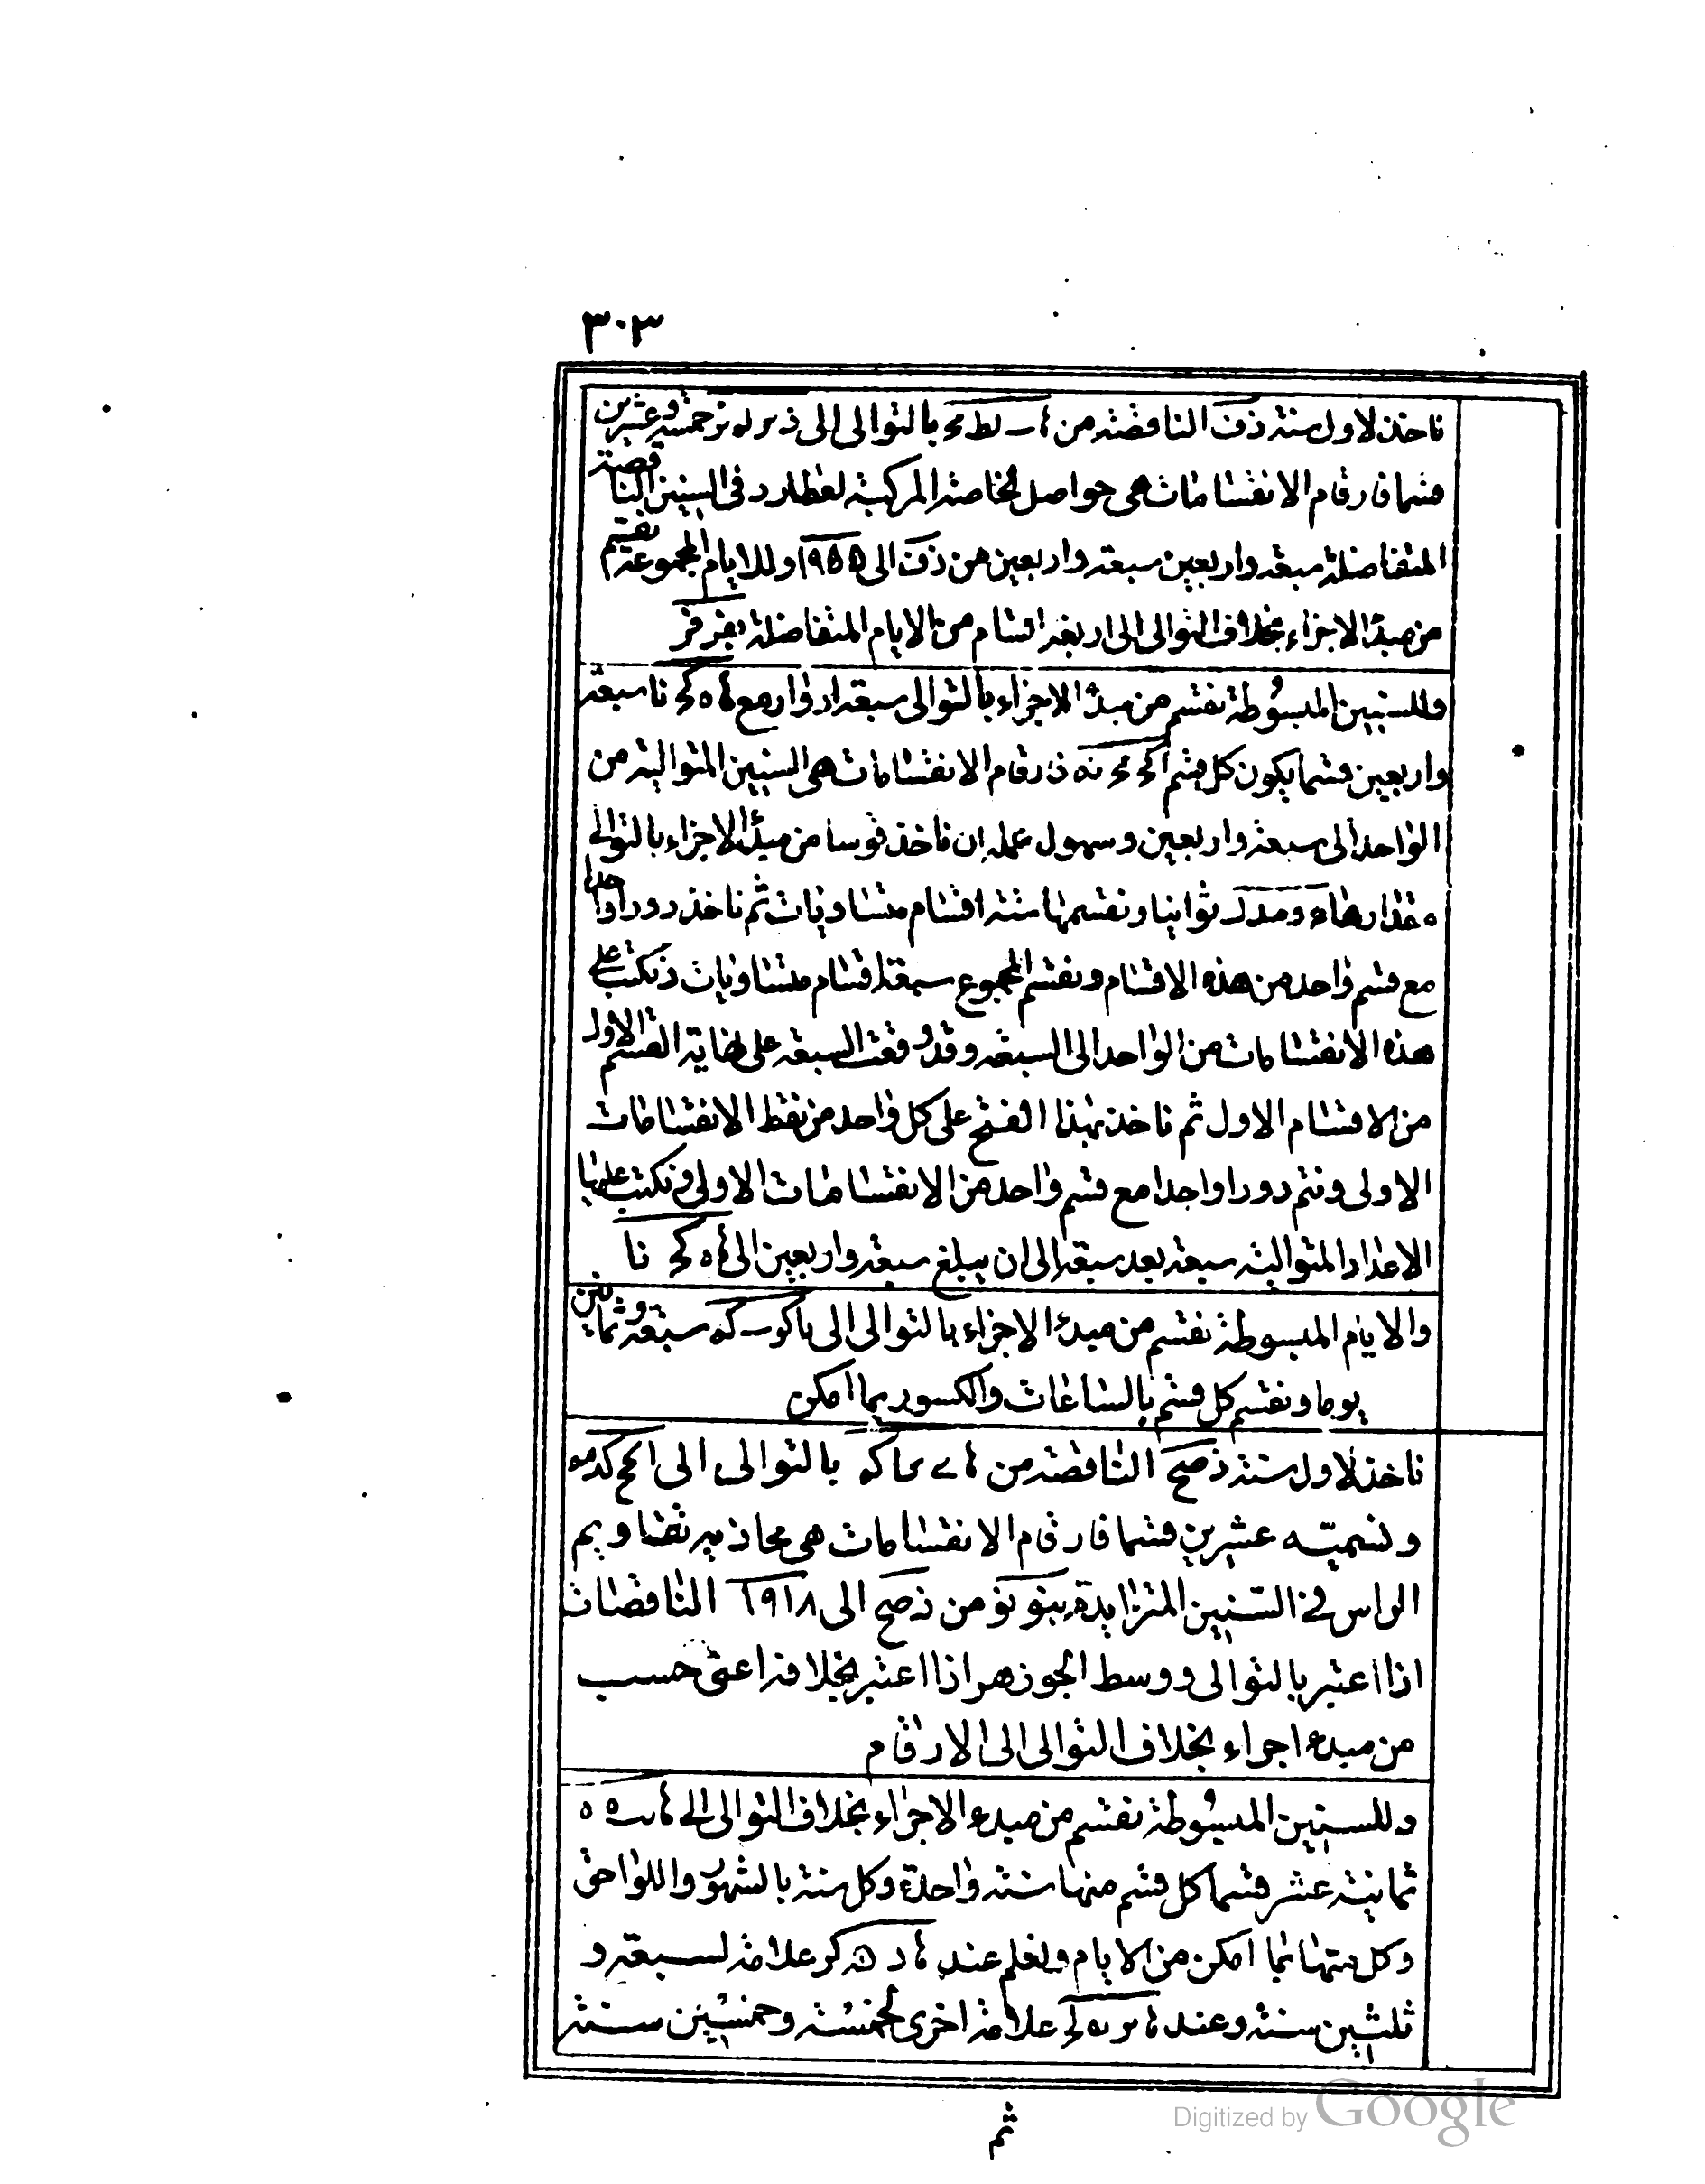 ٣٠٣
ناخذ لاول سنة ذف الناقصة من بالتوالى الى خمسة وعشرين
قسما فارقام الانقسامات هى حواصل الخاصة المركبة لعطارد فى السنين الناقصة
المتفاضلة سبعة واربعين سبعة واربعين من ذف الى ١٩٥٥ وللايام المجموعة نقسم
من مبدأ الاجزاء بخلاف التوالى الى اربعة اقسام من الايام المتفاضلة
وللسنين المبسوطة نقسم من مبدأ الاجزاء بالتوالى سبعة ادوار مع ها ه كح نا سبعة
واربعين قسما يكون كل قسم فارقام الانقسامات هى السنين المتوالية من
الواحد الى سبعة واربعين وسهول عمله ان ناخذ قوسا من مبدأ الاجزاء بالتوالى
مقدارها ثوانيا ونقسمها ستة اقسام متساويات ثم ناخذ دورا واحدا
مع قسم واحد من هذه الاقسام ونقسم المجموع سبعة اقسام متساويات ونكتب على
هذه الانقسامات من الواحد الى السبعة وقد وقعت السبعة على نهاية القسم الاول
من الاقسام الاول ثم ناخذ بهذا الفتح على كل واحد من نقط الانقسامات
الاولى ونتم دورا واحدا مع قسم واحد من الانقسامات الاولى ونكتب عليها
الاعداد المتوالية سبعة بعد سبعة الى ان يبلغ سبعة واربعين الى ها ه كح نا
والايام المبسوطة نقسم من مبدأ الاجزاء بالتوالى الى سبعة وثمانين
يوما ونقسم كل قسم بالساعات والكسور بما امكن
ناخذ لاول سنة ذصح الناقصة من بالتوالى الى
ونسميّه عشرين قسما فارقام الانقسامات هى محاذيه تقاويم
الراس فى السنين المتزايدة بنو نو من ذصح الى ١٩١٨ الناقصات
اذا اعتبر بالتوالى ووسط الجوزهر اذا اعتبر بخلافه اعنى حسب
من مبدء اجراء بخلاف التوالى الى الارقام
وللسنين المبسوطة نقسم من مبدء الاجزاء بخلاف التوالى الى
ثمانية عشر قسما كل قسم منها سنة واحدة وكل سنة بالشهور واللواحق
وكل منها بما امكن من الايام ولنعلم عند علامة لسبعة و
ثلثين سنة وعند علامة اخرى لخمسة وخمسين سنة
ثم
Digitized by Google